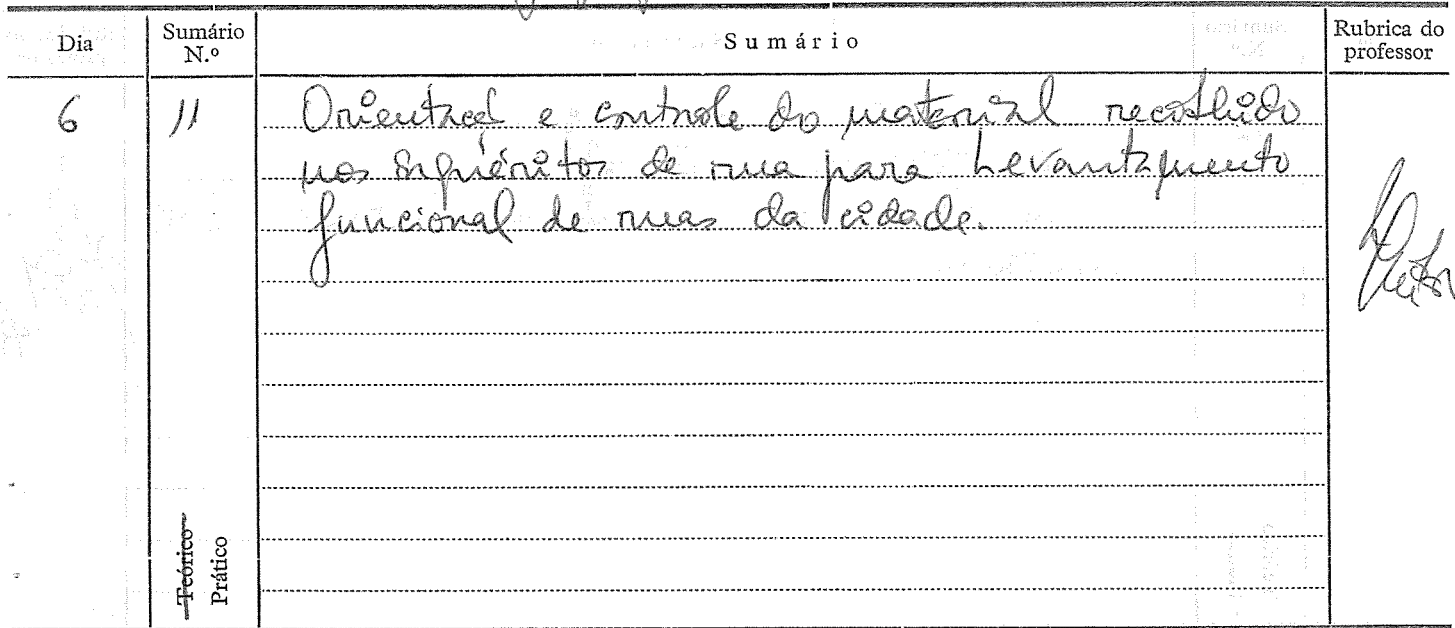 Dia
Sumário
N.º
Sumário
Rubrica do
professor
6
11
Orientação e controle do material recolhido
nos inquéritos de rua para levantamento
funcional de ruas da cidade.
Teórico
Prático